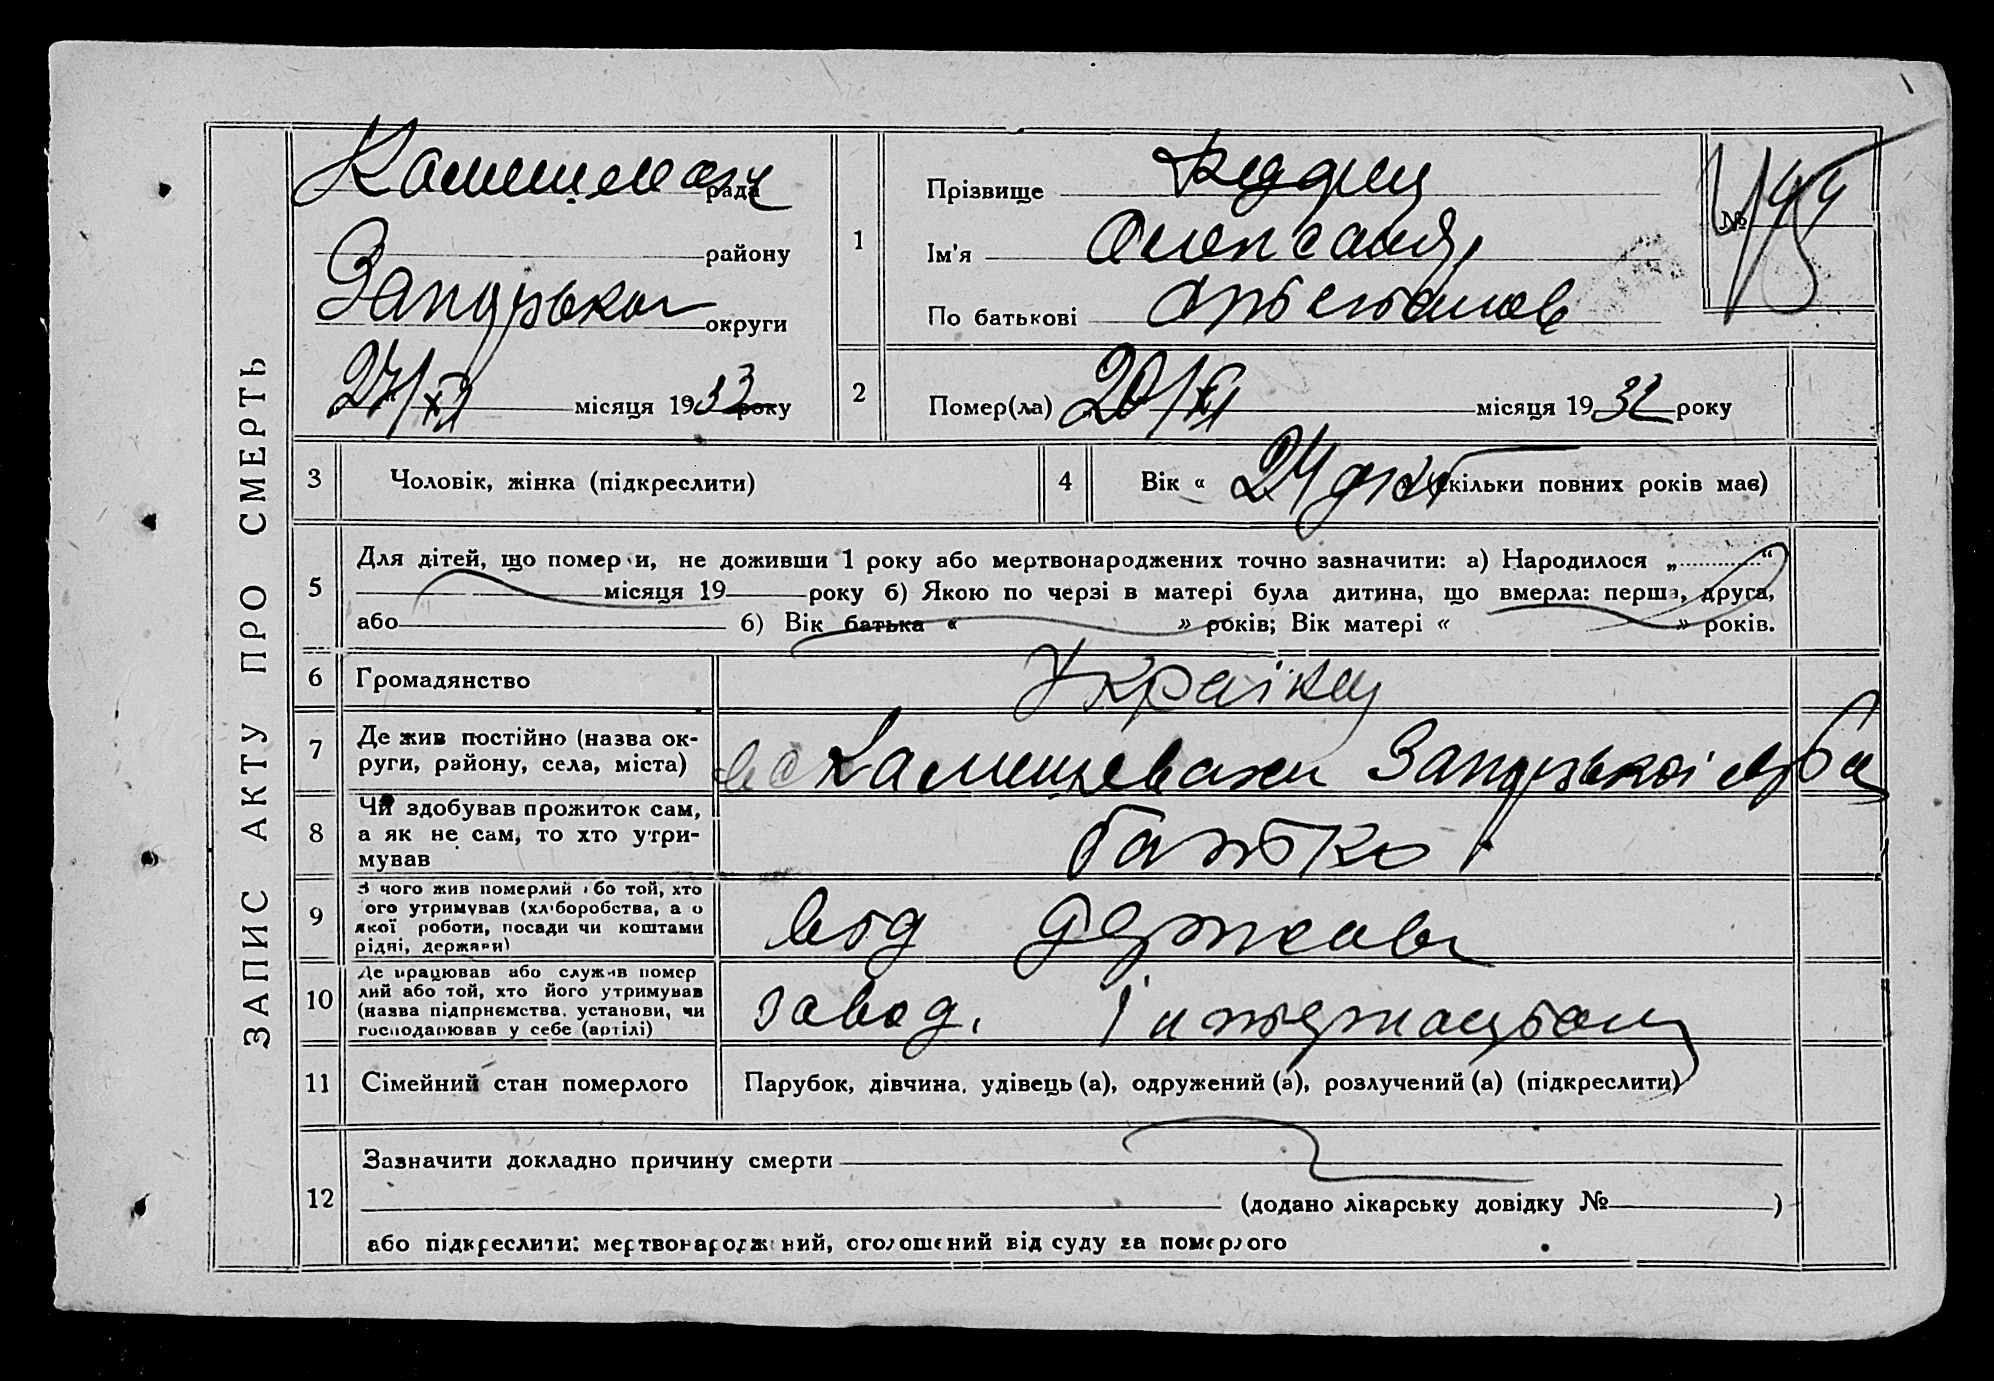 ЗАПИС АКТУ ПРО СМЕРТЬ
рада
району
округи
27/XII місяця 1933 року
1
Прізвище
Ім'я Олександр
По батькові
№
2
Помер(ла) 20/XI місяця 1932 року
3 Чоловік, жінка (підкреслити)
4 Вік « 24 скільки повних років мав)
5 Для дітей, що померли, не доживши 1 року або мертвонароджених точно зазначити: а) Народилося „ “
місяця 19 року б) Якою по черзі в матері була дитина, що вмерла: перша, друга,
або б) Вік батька « » років; Вік матері « » років.
6 Громадянство
7 Де жив постійно (назва ок-
руги, району, села, міста)
Камишеваха
8 Чи здобував прожиток сам,
а як не сам, то хто утри-
мував
батько
9 З чого жив померлий або той, хто
його утримував (хліборобства, або
якої роботи, посади чи коштами
рідні, держави)
від держави
10 Де працював або служив помер
лий або той, хто його утримував
(назва підприємства, установи, чи
господарював у себе (артілі)
завод.
11 Сімейний стан померлого
Парубок, дівчина, удівець (а), одружений (а), розлучений (а) (підкреслити)
12 Зазначити докладно причину смерти
(додано лікарську довідку № )
або підкреслити: мертвонароджений, оголошений від суду за померлого